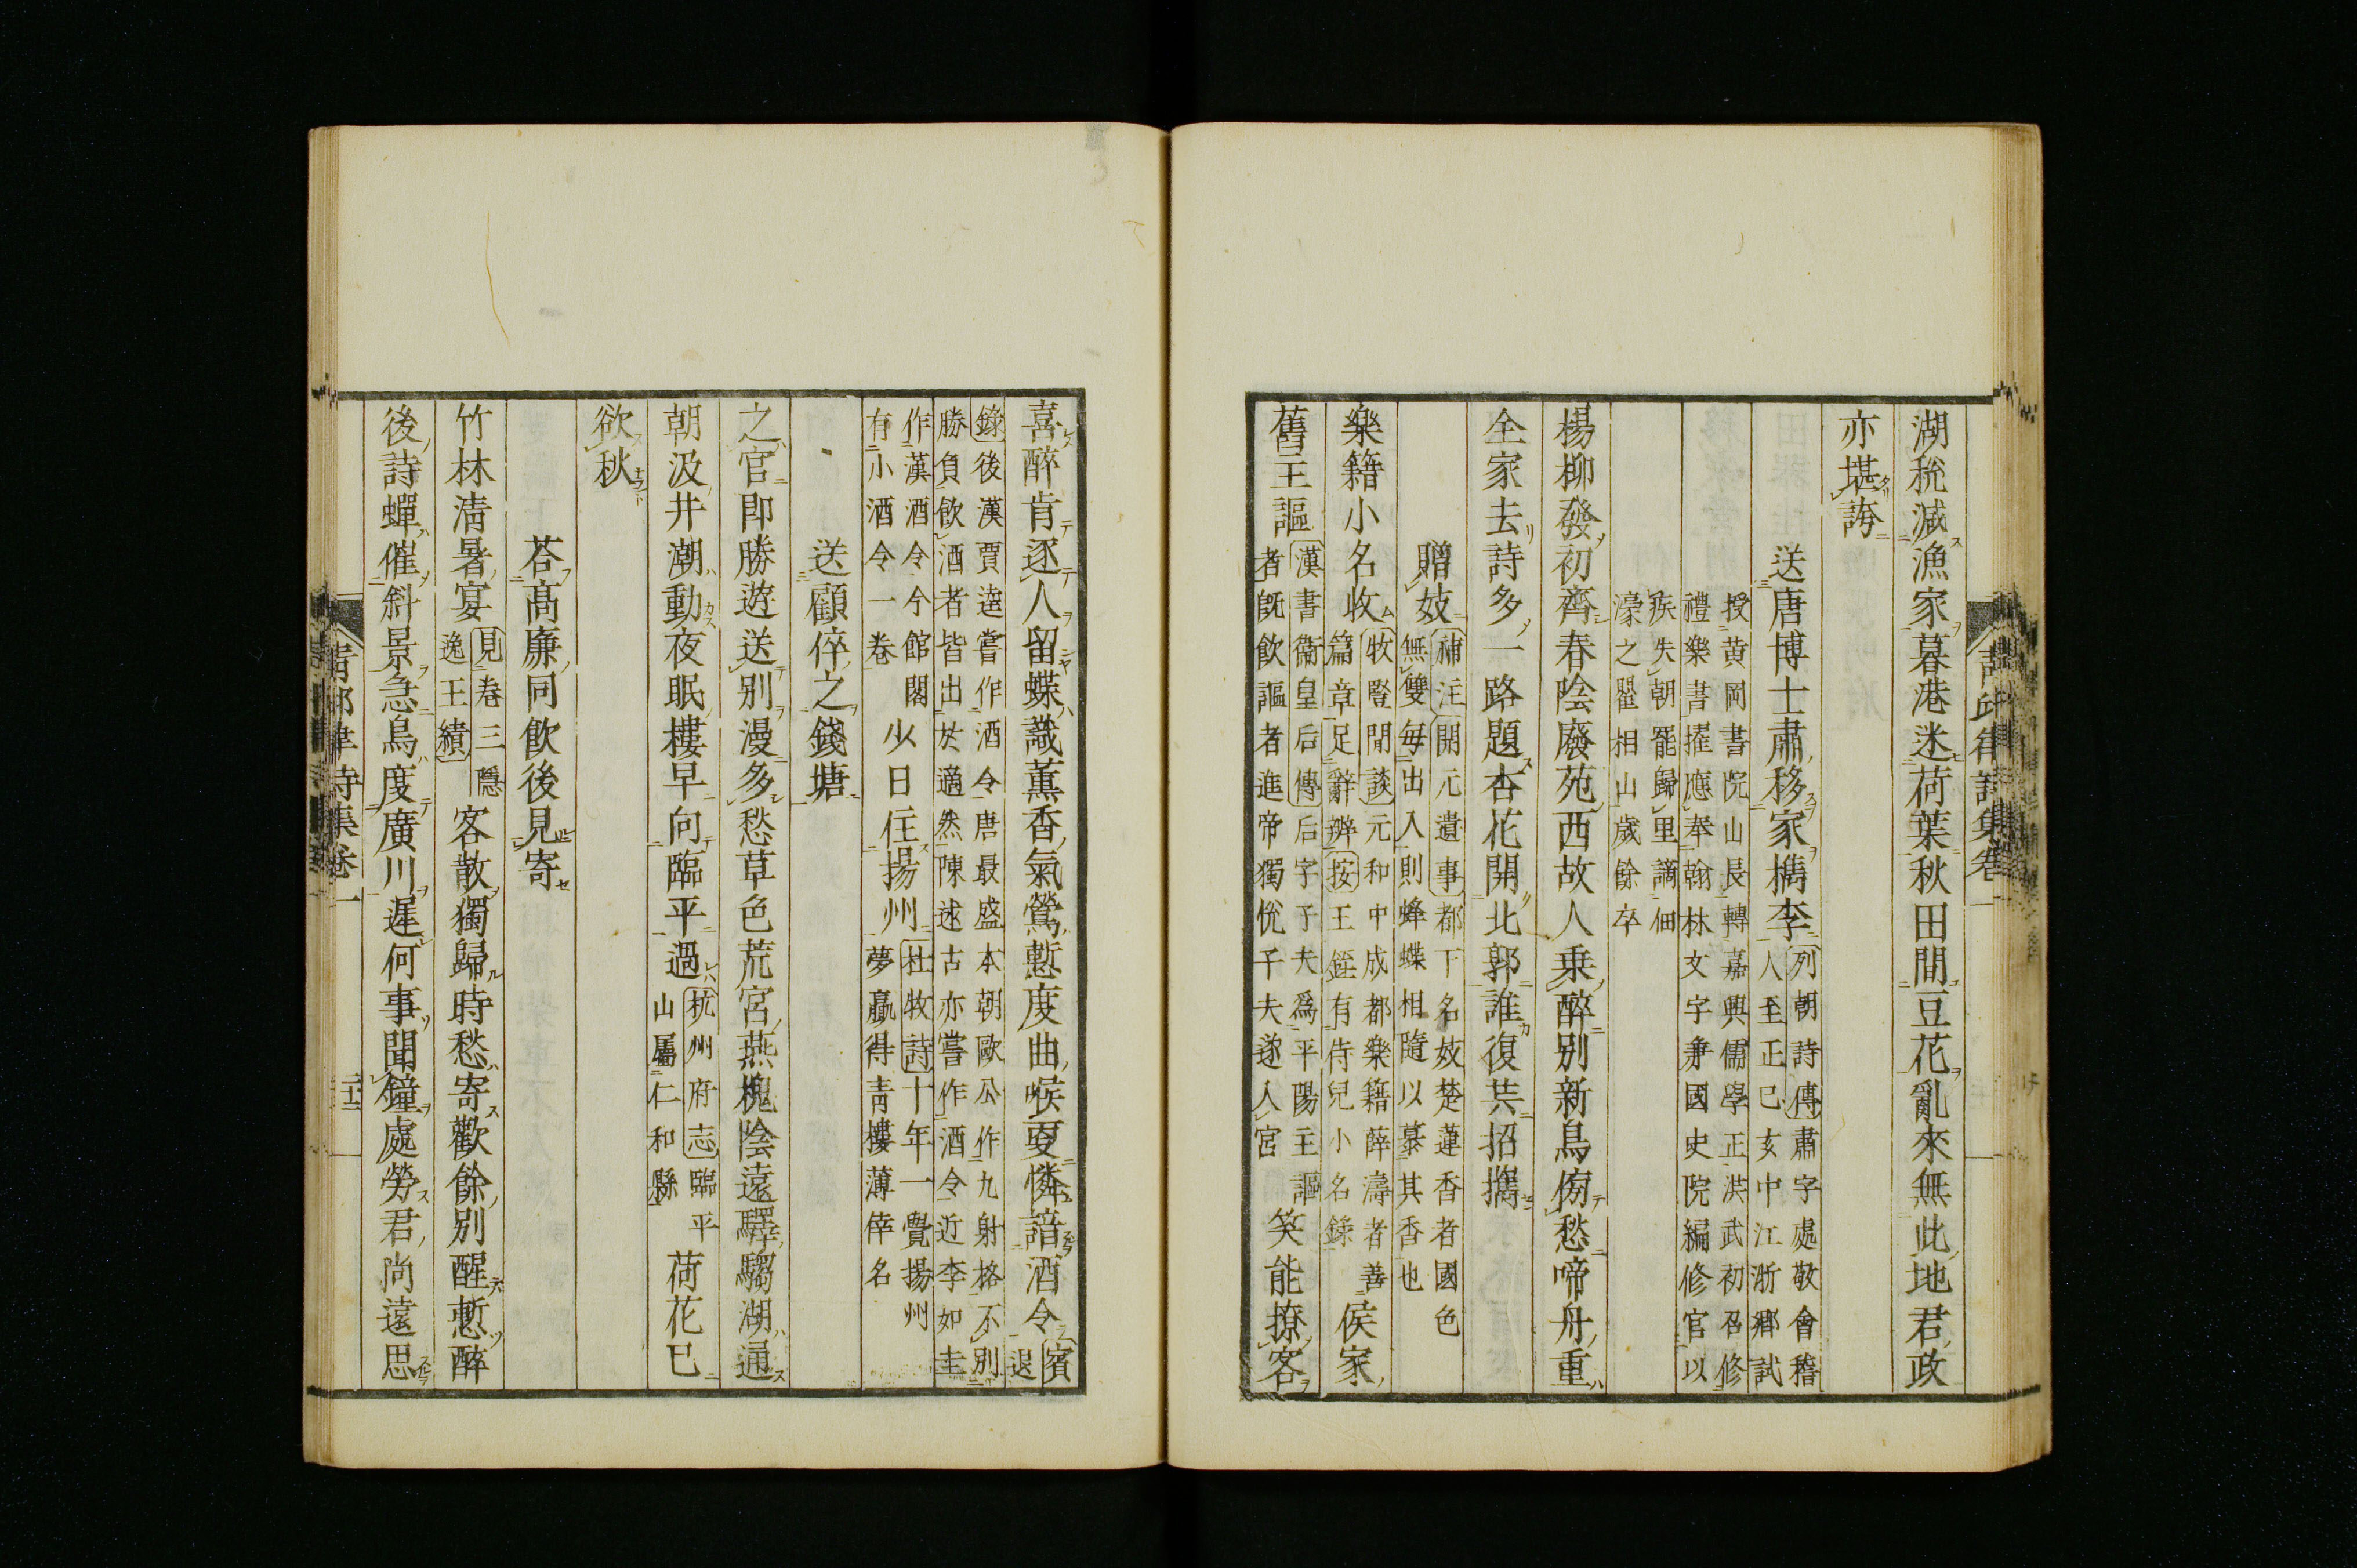 湖稅減漁家暮港迷荷葉秋田間豆花亂來無此地君政
亦堪誇
送唐博士肅移家檇李列朝詩傳肅字處敬會稽
人至正巳亥中江浙鄉試
授黄岡書院山長轉嘉興儒學正洪武初召修
禮樂書擢應奉翰林文字兼國史院編修官以
疾失朝罷歸里謫佃
濠之瞿相山歲餘卒
楊柳發初齊春陰廢苑西故人乗醉別新鳥傍愁啼舟重
全家去詩多一路題杏花開北郭誰復共招攜
贈妓補注開元遺事都下名妓楚蓮香者國色
無雙每出入則蜂蝶相隨以慕其香也
樂籍小名收牧豎閒談元和中成都樂籍薛濤者善
篇章足辭辨按王銍有侍兒小名錄
侯家
舊主謳漢書衞皇后傳后字子夫爲平陽主謳
者旣飲謳者進帝獨悅子夫遂入宮
笑能撩客
喜醉肯逐人留蝶識薫香氣鶯慙度曲喉夏憐諳酒令賓
退
錄後漢賈逵嘗作酒令唐最盛本朝歐公作九射格不別
勝負飲酒者皆出於適然陳述古亦嘗作酒令近李如圭
作漢酒令今館閣
有小酒令一卷
少日住揚州杜牧詩十年一覺揚州
夢贏得靑樓薄倖名
送顧倅之錢塘
之官即勝遊送別漫多愁草色荒宮燕槐陰遠驛騶湖通
朝汲井潮動夜眠樓早向臨平過杭州府志臨平
山屬仁和縣
荷花已
欲秋
荅高廉同飲後見寄
竹林清暑宴見卷三隱
逸王績
客散獨歸時愁寄歡餘別醒慙醉
後詩蟬催斜景急烏度廣川遲何事聞鐘處勞君尚遠思
青邱律詩集卷一
二十二